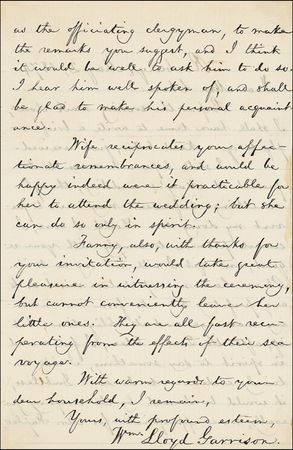 as the officiating clergyman, to make
the remarks you suggest, and I think
it would be well to ask him to do so.
I hear him well spoken of, and shall
be glad to make his personal acquaint-
ance.
Wife reciprocates your affec-
tionate remembrances, and would be
happy indeed were it practicible for
her to attend the wedding; but she
can do so only in spirit.
Fanny, also, with thanks for
your invitation, would take great
pleasure in witnessing the ceremony,
but cannot conveniently leave her
little ones. They are all fast recu-
perating from the effects of their sea
voyage.
With warm regards to your
dear household, I remain,
Yours, with profound esteem,
Wm. Lloyd Garrison.